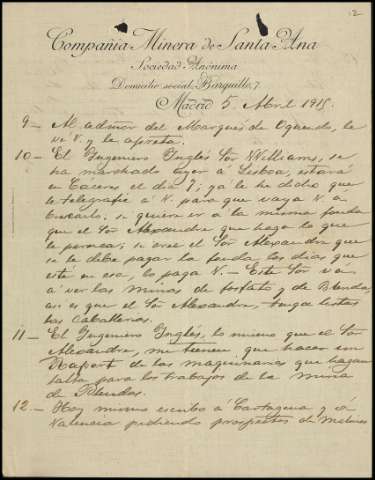 2
Compañía Minera de Santa Ana
Sociedad Anónima
Domicilio social, Barquillo, 7.
Madrid 5 Abril 1915.
9 — Al admor del Marqués de Oquendo, le
ve V. y le aprieta.
10 — El Ingeniero Inglés Sor Williams, se
ha marchado ayer á Lisboa, estará
en Cáceres el dia 7, ya le he dicho que
le telegrafie á V. para que vaya V. a
buscarlo. si quiere ir a la misma fonda
que el Sor Alexandre que haga lo que
le parezca; si cree el Sor Alexandre que
se le debe pagar la fonda, los dias que
esté en esa, lo paga V. — Este Sor va
á ver las minas de fosfato y de Blenda,
asi es que el Sor Alexandre, tenga listas
las Caballerias.
11 — El Ingeniero Inglés, lo mismo que el Sor
Alexandre, me tienen que hacer un
Raport de las maquinarias que hagan
falta para los trabajos de la mina
de Blendas.
12 — Hoy mismo escribo á Cartagena y á
Valencia pidiendo prospectos de motores